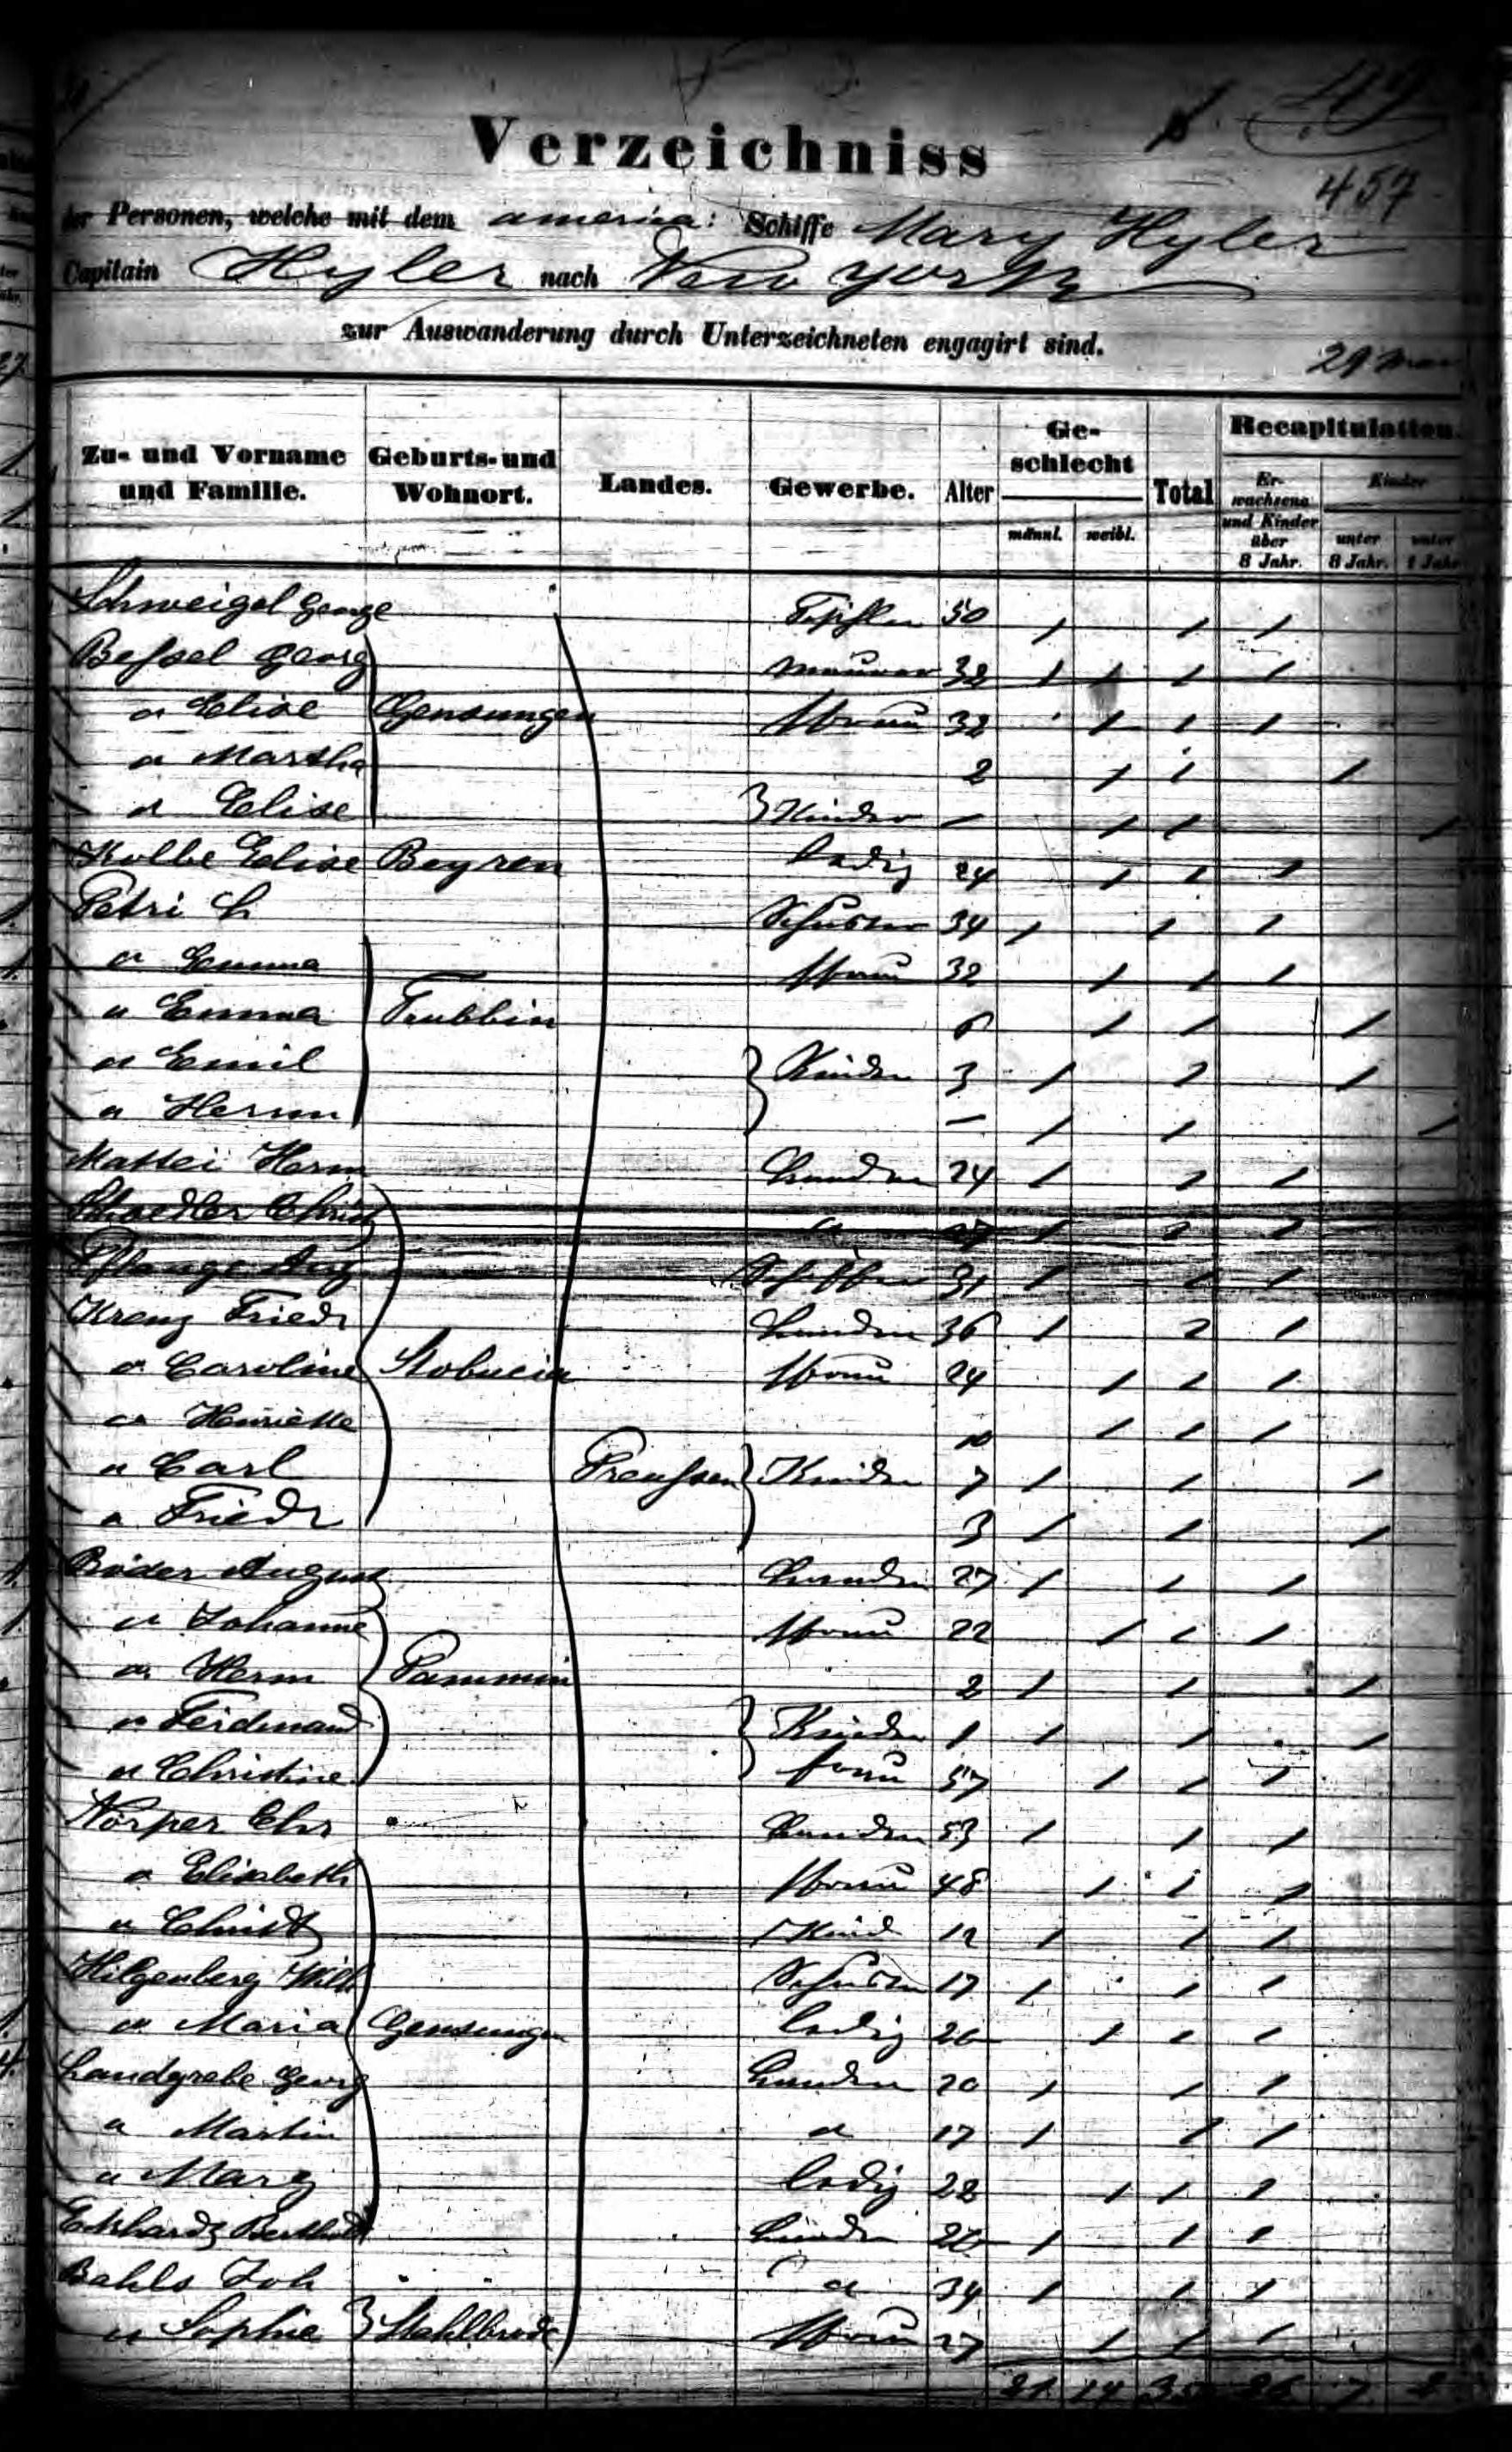 457
Verzeichniss
der Personen, welche mit dem america: Schiffe Mary Hyler
Capitain Hyler nach New York
zur Auswanderung durch Unterzeichneten engagirt sind.
29
Zu- und Vorname und Familie. Geburts- und Wohnort. Landes. Gewerbe. Alter Geschlecht männl. weibl. Total Recapitulation. Erwachsene und Kinder über 8 Jahr. Kinder unter 8 Jahr. unter 1 Jahr
Schweigel George 50 1 1 1
Beſsel Georg Maurer 32 1 1 1 1
" Elise Gensungen Frau 32 1 1 1
" Martha 2 1 1 1
" Elise } Kinder – 1 1 1
Kolbe Elise Beyren ledig 24 1 1 1
Petri Schuster 34 1 1 1
" Emma Frau 32 1 1 1
" Emma 6 1 1 1
" Emil } Kinder 3 1 1 1
" Herm – 1 1 1
Mattei Herm 24 1 1 1
1 1 1
Aug 31 1 1 1
Friedr 36 1 1 1
" Caroline Frau 24 1 1 1
" Henriette 10 1 1 1
" Carl Preuſsen } Kinder 7 1 1 1
" Friedr 3 1 1 1
August 27 1 1 1
" Johanne Frau 22 1 1 1
" Herm Pammin 2 1 1 1
" Ferdinand } Kinder 1 1 1 1
" Christine Frau 57 1 1 1
Körper Chr 53 1 1 1
" Elisabeth Frau 48 1 1 1
" Kind 12 1 1 1
Hilgenberg Wilh Schuster 17 1 1 1
" Maria Gensungen ledig 26 1 1 1
Landgrebe Georg 20 1 1 1
" Martin " 17 1 1 1
" Marg ledig 22 1 1 1
Eckhardt Berthold 26 1 1 1
Bahls Joh " 34 1 1 1
" Sophie } Stahlbrode Frau 27 1 1 1
21 14 35 26 7 2